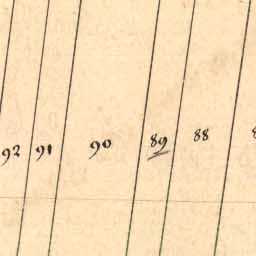 92 91 90 89 88